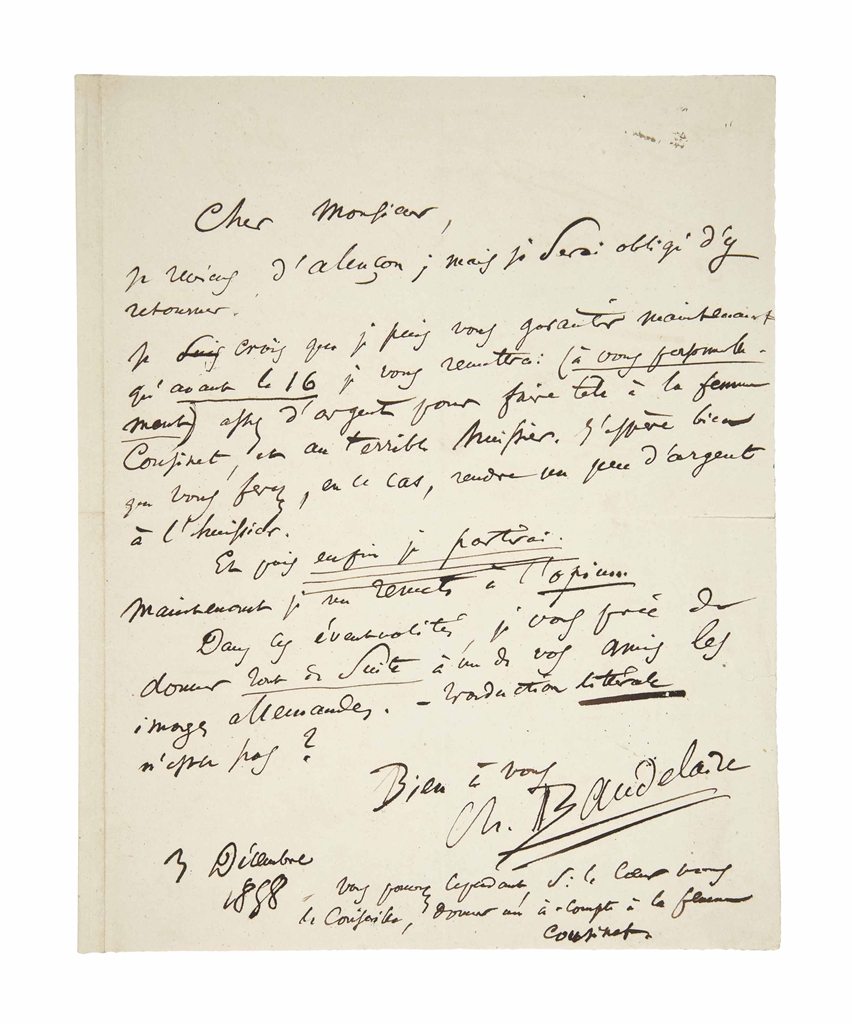 Cher Monsieur,
Je reviens d'alençon ; mais je serai obligé d'y
retourner.
Je suis crois que je puis vous garantir maintenant
qu'avant le 16 je vous remettrai (à vous personnelle-
ment) assez d'argent pour faire tête à la femme
Cousinet, et au terrible huissier. J'espère bien
que vous ferez, en ce cas, rendre un peu d'argent
à l'huissier.
Et puis enfin je partirai.
Maintenant je me remets à l'opium.
Dans ces éventualités, je vous prie de
donner tout de suite à un de vos amis les
images allemandes. - traduction littérale
n'est-ce pas ?
Bien à vous
Ch. Baudelaire
3 Décembre
1858
Vous pouvez cependant, si le Cœur vous
le Conseille, donner un à-compte à la femme
Cousinet.